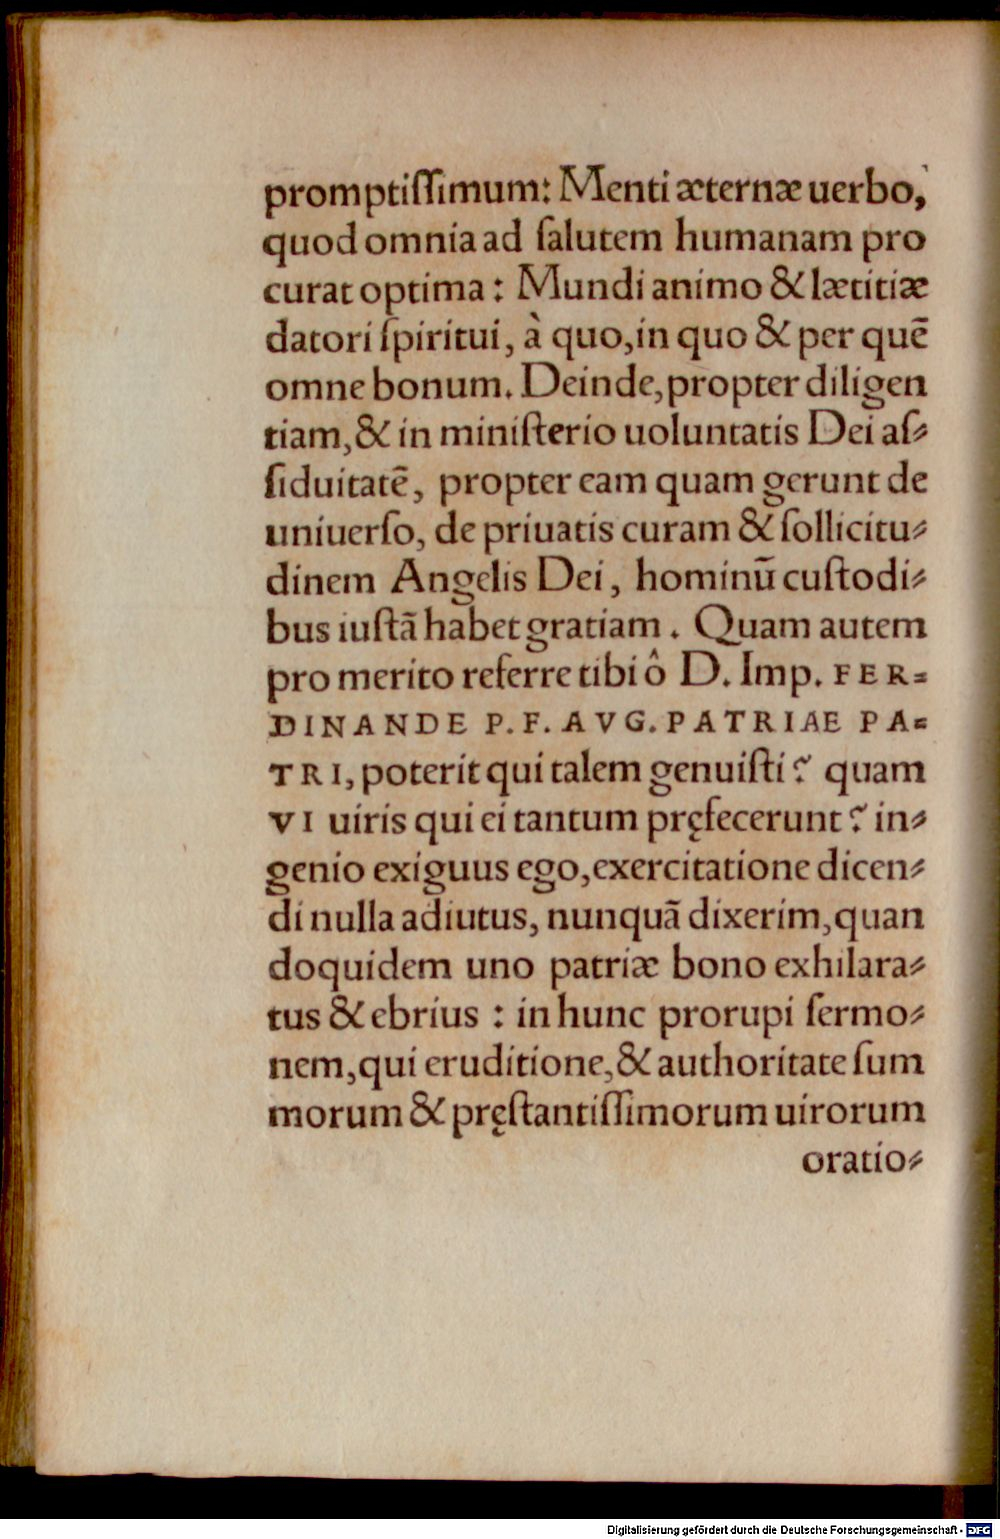 promptiſſimum: Menti æternæ uerbo,
quod omnia ad ſalutem humanam pro
curat optima: Mundi animo & lætitiæ
datori ſpiritui, à quo, in quo & per quē
omne bonum. Deinde, propter diligen
tiam, & in miniſterio uoluntatis Dei aſ⸗
ſiduitatē, propter eam quam gerunt de
uniuerſo, de priuatis curam & ſollicitu⸗
dinem Angelis Dei, hominū cuſtodi⸗
bus iuſtā habet gratiam. Quam autem
pro merito referre tibi ô D. Imp. FER⸗
DINANDE P. F. AVG. PATRIAE PA⸗
TRI, poterit qui talem genuiſti? quam
VI uiris qui ei tantum pręfecerunt? in⸗
genio exiguus ego, exercitatione dicen⸗
di nulla adiutus, nunquā dixerim, quan
doquidem uno patriæ bono exhilara⸗
tus & ebrius: in hunc prorupi ſermo⸗
nem, qui eruditione, & authoritate ſum
morum & pręſtantiſſimorum uirorum
oratio⸗
Digitalisierung gefördert durch die Deutsche Forschungsgemeinschaft - DFG